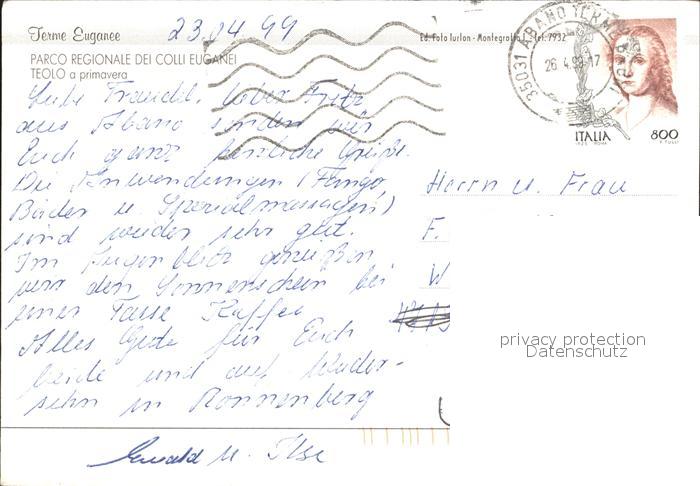 Terme Euganee
23.04.99
Ed. Foto Iurlan - Montegrotto T. Tel. 7932
PARCO REGIONALE DEI COLLI EUGANEI
TEOLO a primavera
35031 ABANO TERME
26.4.99-17
ITALIA 800
I.P.Z.S. ROMA
F. TULLI
Liebe Traudel, lieber Fritz
aus Abano senden wir
Euch ganz herzliche Grüße.
Die Anwendungen (Fango,
Bäder u. Spezialmassagen)
sind wieder sehr gut.
Im Augenblick genießen
wir den Sonnenschein bei
einer Tasse Kaffee
Alles Gute für Euch
beide und auf Wieder-
sehn in Ronnenberg
Ewald u. Ilse
Herrn u. Frau
F.
W
privacy protection
Datenschutz